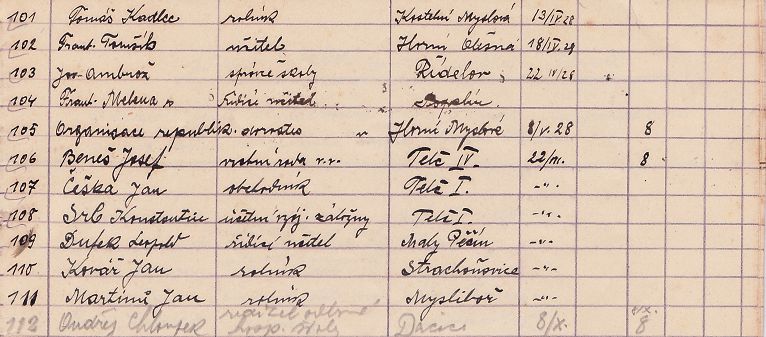 101 Tomáš Kadlec rolník Kostelní Myslová 13/IV 28
102 Frant. učitel Horní Olešná 18/IV 28
103 Jos. Ambrož správce školy Řídelov 22 IV/28
104 Frant. Melena řídící učitel
105 Organisace republik. dorostu v Horní Myslové 8/V. 28 8
106 Beneš Josef vrchní rada v.v. Telč IV. 22/VI. 8
107 Češka Jan obchodník Telč I. -„-
108 Srb Konstantin účetní vzáj. záložny Telč I. -„-
109 Dufek Leopold řídící učitel Malý Pěčín -„-
110 Kovář Jan rolník Strachoňovice -„-
111 Martinů Jan rolník Myslibоř -„-
112 Ondřej ředitel odborné Dačice 8/X. 8/X.
hosp. školy 8